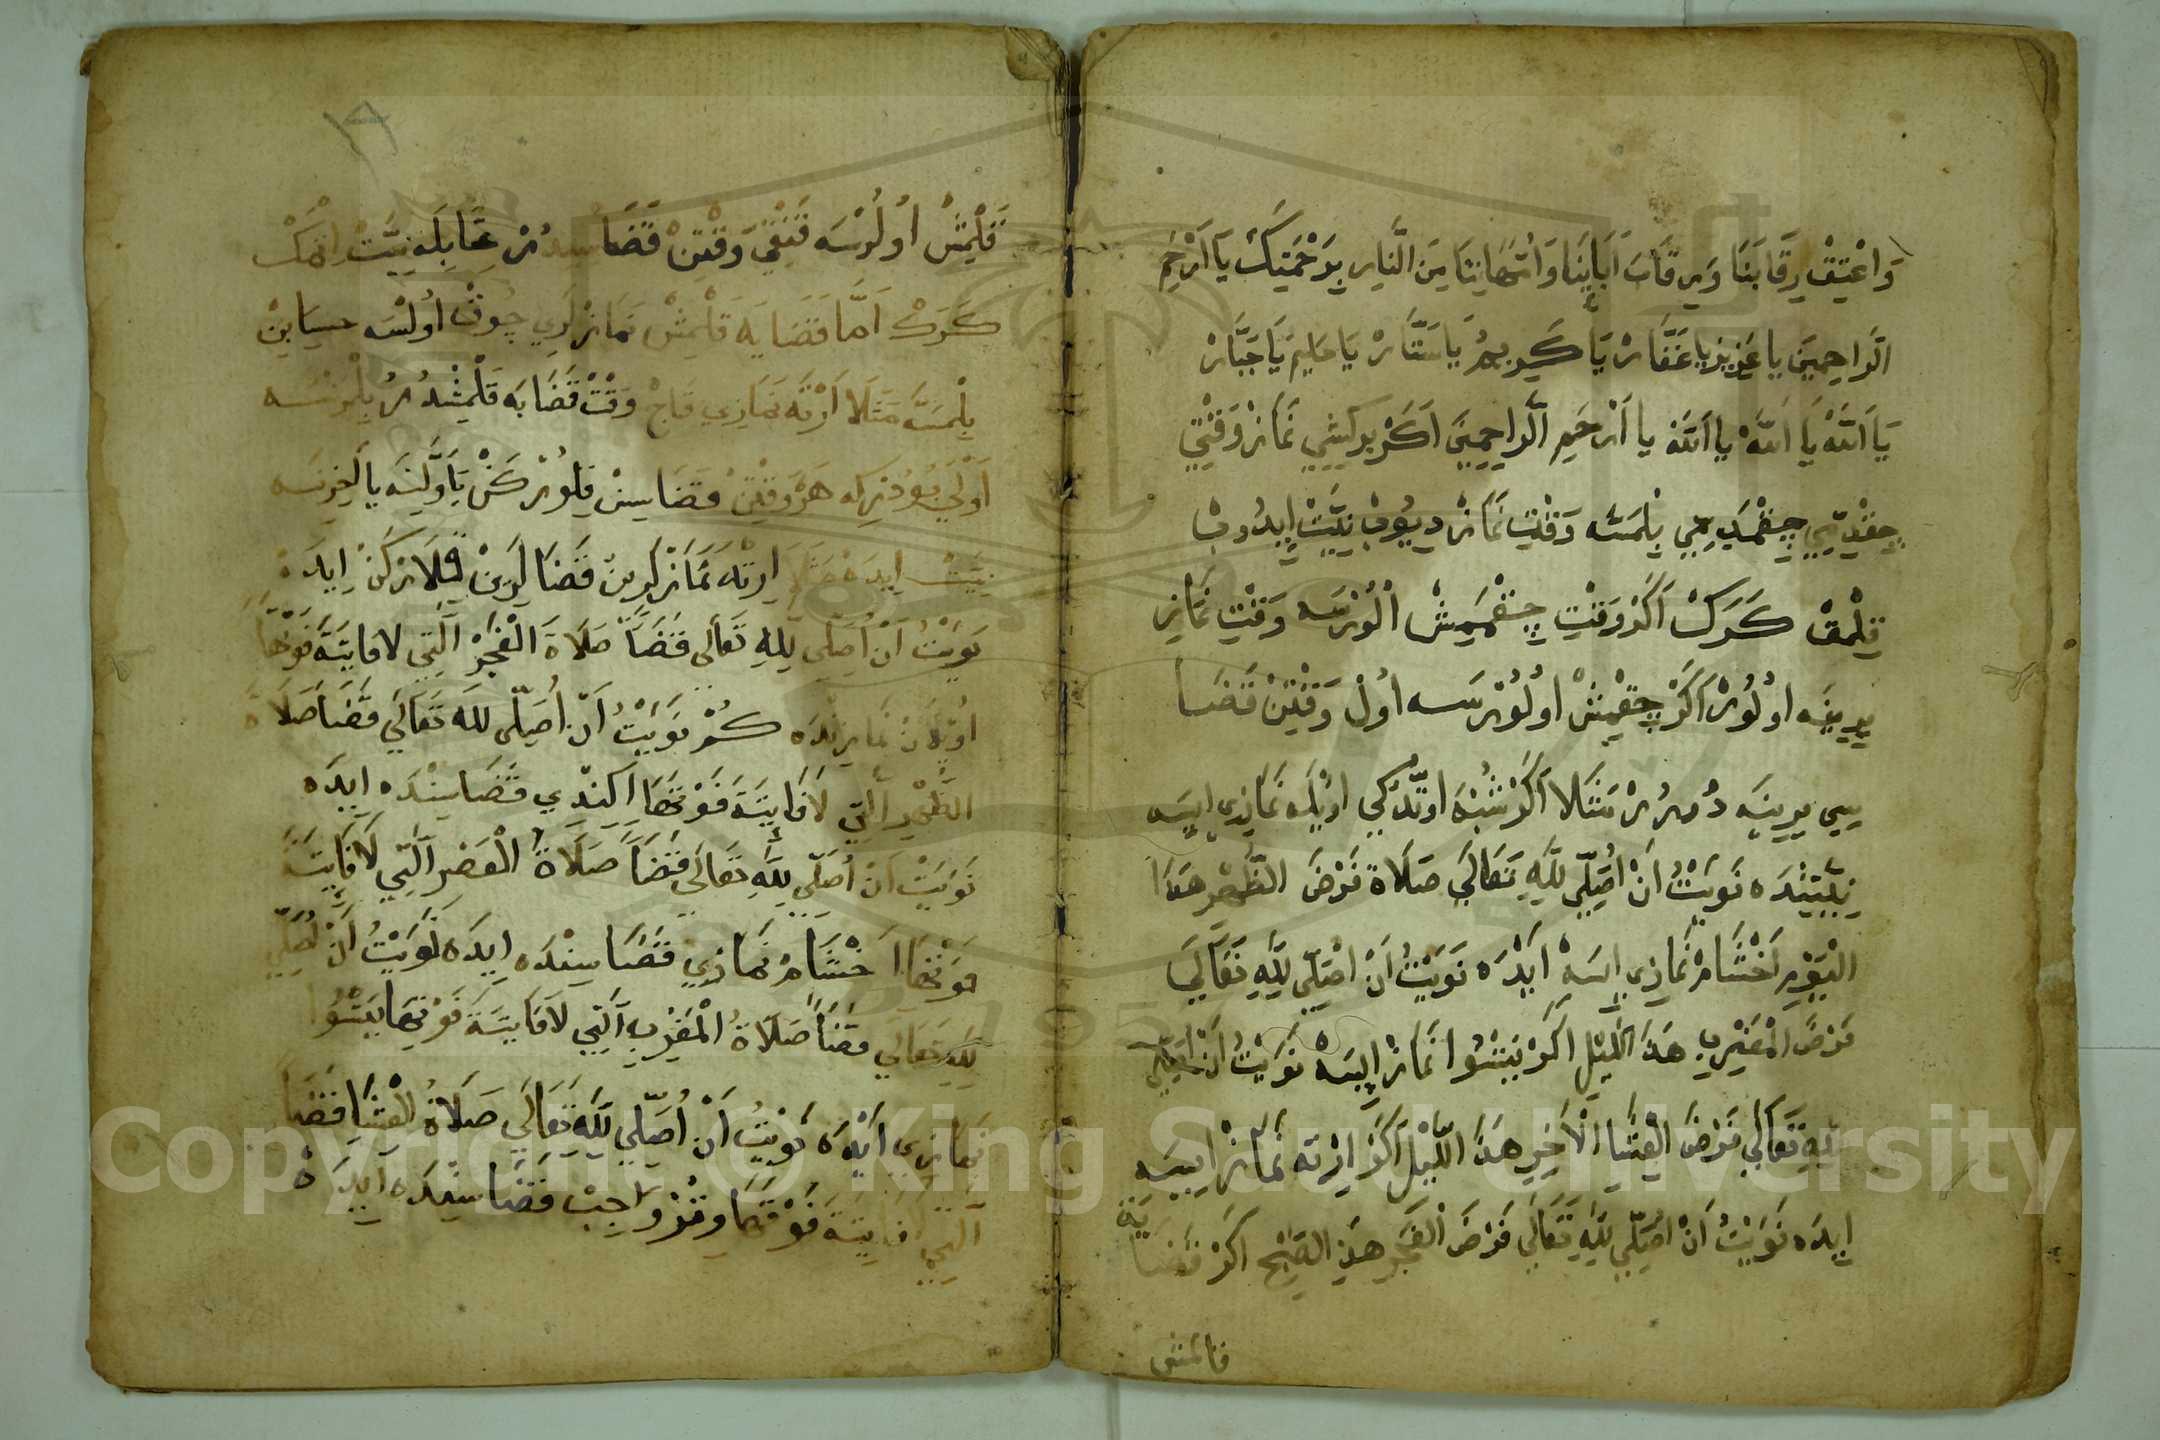 وَاعْتِقْ رِقَابَنَا وَرِقَابَ اَبَايِنَا وَاُمَّهَاتِنَا مِنَ النَّارِ بِرَحْمَتِكَ يَا اَرْحَمَ
الرَّاحِمِينَ يا عَزِيزْ يا غَفَّارْ يَا كَرِيمُ يَا سَتَّارْ يَا حَلِيمْ يَا جَبَّارْ
يَا اَللّٰهْ يَا اَللّٰهْ يا اَللّٰهْ يا اَرْحَمِ الرَّاحِمِينَ اَكَرْ بِرْ كِشِي نَمَازْ وَقْتِي
چِقْدِمِي چِقْمَدِمِي بِلْمَسَه وَقْتِ نَمَازْ دِيُوبْ نِيَّتْ اِيدُوبْ
قِلْمَقْ كَرَكْ اَكَرْ وَقْتِ چِقْمَمِشْ اُلُوْرسَه وَقْتِ نَمَازِ
يِرِينَه اوُلُورْ اَكَرْ چِقْمِشْ اوُلُورْسَه اوُلْ وَقْتِنْ قَضَا
سِي يِرِينَه دُرُرْ مَثَلا اَكَرْ شُبْهَ اوتْدُكِي اوُيْلَه نَمَازِي اِيسَه
نِيَّتِنْدَه نَوَيْتُ اَنْ اُصَلِّي لِلّٰهِ تَعَالَي صَلَاةَ فَرْضَ الظُّهْرِ هَذَا
الْيَوْمِ اَخْشَامْ نَمَازِي اِيسَهْ اَيْدَه نَوَيْتُ اَنْ اُصَلِّي لِلّٰهِ تَعَالَي
فَرْضَ الْمَغْرِبِ هَذَا اللَّيْلِ اَكَرْ يَتْسُوا نَمَازْ اِيسَهْ نَوَيْتُ اَنْ اُصَلِّي
لِلّٰهِ تَعَالَي فَرْضَ الْعِشَاءِ الْاَخِيرِ هَذَا اللَّيْلِ اَكَرْ اِرْتَه نَمَازْ اِيسَه
اِيدَه نَوَيْتُ اَنْ اُصَلِّي لِلّٰهِ تَعَالَي فَرْضَ الْفَجْرِ هَذِ الصُّبْحِ اَكَرْ قَضَايَه
قالمش
قَلْمِشْ اوُلُرْسَه قَنْقِي وَقْتِنْ قَضَاسِيدُرْ نِيَّتْ اِتْمَكْ
كَرَكْ اَمَّا قَضَايَه قَلْمِشْ نَمَازْلَرِي چُوقْ اُولْسَه حِسَابِنْ
بِلْمَسَه مَثَلَا اَرْتَه نَمَازِي قَاچْ وَقْتْ قَضَايَه قَلْمِشْدُرْ بِلْمَزْسَه
اَوْلَي بُودُرْكِه هَرْ وَقْتِنْ قَضَاسِنْ قِلُورْكَنْ يَا اَوَّلِنَه يا اَخِرِنَه
نِيَّتْ اِيدَه مَثَلَا اِرْتَه نَمَازْلَرِينْ قَضَالَرِينْ قِلَارْكَنْ اِيدَهْ
نَوَيْتُ اَنْ اُصَلِّي لِلّٰهِ تَعَالَي قَضَاءً صَلَاةَ الْفَجْرْ الَّتِي لا فَايِتَةَ فَوْقَهَا
اُوُيْلَانْ نَمَازِنْدَه نَوَيْتُ اَنْ اُصَلِّي لِلّٰهِ تَعَالَي قَضَاءً صَلَاةَ
الظُّهْرِ الَّتِي لَا فَايِتَةَ فَوْقَهَا اِكِنْدِي قَضَاسِنْدَه اِيدَه
نَوَيْتُ اَنْ اُصَلِّي لِلّٰهِ تَعَالَي قَضَاءً صَلَاةُ الْعَصْرِ الَّتِي لَا فَايِتَةَ
فَوْقَهَا اَخْشَامْ نَمَازِي قَضَاسِنْدَه اِيدَه نَوَيْتُ اَنْ اُصَلِّي
لِلّٰهِ تَعَالَي قَضَاءً صَلَاةُ الْمَغْرِبِ الَّتِي لَا فَايِتَةَ فَوْقَهَا يَتْسُوا
نَمَازِي اَيْدَه نَوَيْتُ اَنْ اُصَلِّي لِلّٰهِ تَعَالَي صَلَاةُ الْعِشَاءِ قَضَاءً
الَّتِي لَا فَايِتَةَ فَوْقَهَا وِتْرْ وَاجِبْ قَضَاسِنْدَه اَيْدَه
Copyright © King Saud University